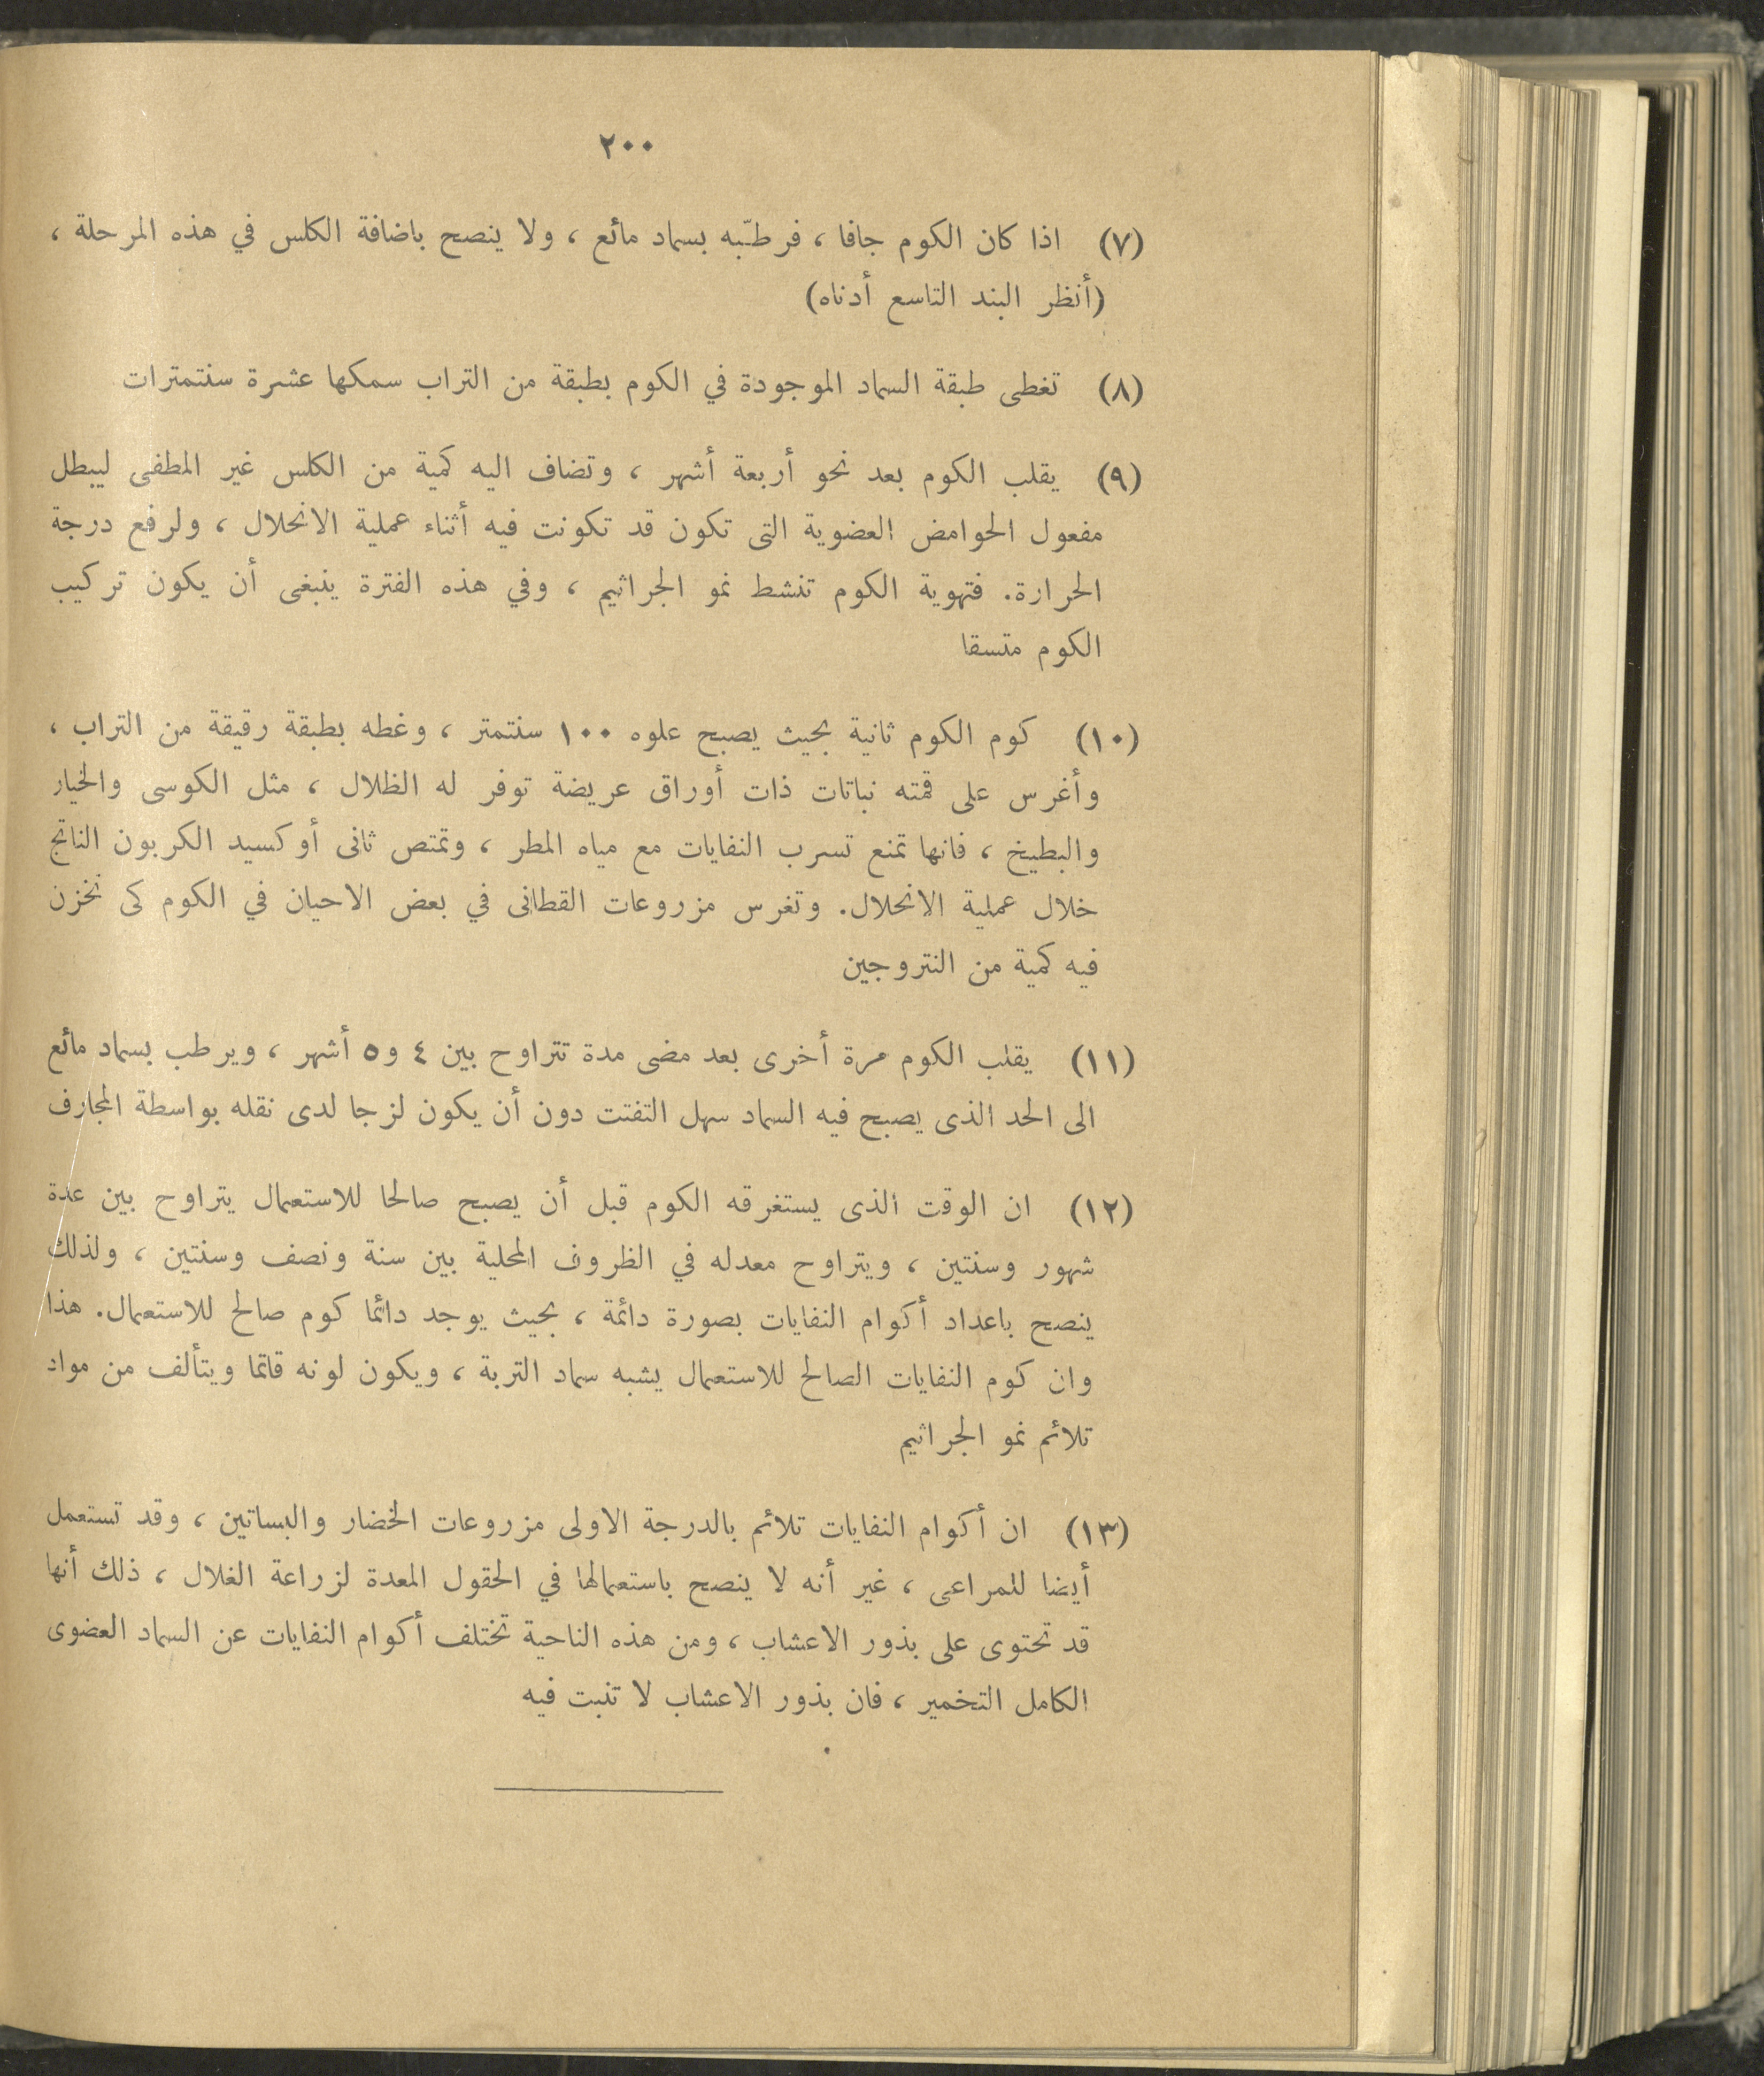 ٢٠٠
(٧) اذا كان الكوم جافا ، فرطّبه بسماد مائع ، ولا ينصح باضافة الكلس في هذه المرحلة ،
(أنظر البند التاسع أدناه)
(٨) تغطى طبقة السماد الموجودة في الكوم بطبقة من التراب سمكها عشرة سنتمترات
(٩) يقلب الكوم بعد نحو أربعة أشهر ، وتضاف اليه كمية من الكلس غير المطفى ليبطل
مفعول الحوامض العضوية التى تكون قد تكونت فيه أثناء عملية الانحلال ، ولرفع درجة
الحرارة. فتهوية الكوم تنشط نمو الجراثيم ، وفي هذه الفترة ينبغى أن يكون تركيب
الكوم متسقا
(١٠) كوم الكوم ثانية بحيث يصبح علوه ١٠٠ سنتمتر ، وغطه بطبقة رقيقة من التراب ،
وأغرس على قمته نباتات ذات أوراق عريضة توفر له الظلال ، مثل الكوسى والخيار
والبطيخ ، فانها تمنع تسرب النفايات مع مياه المطر ، وتمتص ثانى أوكسيد الكربون الناتج
خلال عملية الانحلال. وتغرس مزروعات القطانى في بعض الاحيان في الكوم كى تخزن
فيه كمية من النتروجين
(١١) يقلب الكوم مرة أخرى بعد مضى مدة تتراوح بين ٤ و٥ أشهر ، ويرطب بسماد مائع
الى الحد الذى يصبح فيه السماد سهل التفتت دون أن يكون لزجا لدى نقله بواسطة المجارف
(١٢) ان الوقت الذى يستغرقه الكوم قبل أن يصبح صالحا للاستعمال يتراوح بين عدة
شهور وسنتين ، ويتراوح معدله في الظروف المحلية بين سنة ونصف وسنتين ، ولذلك
ينصح باعداد أكوام النفايات بصورة دائمة ، بحيث يوجد دائما كوم صالح للاستعمال. هذا
وان كوم النفايات الصالح للاستعمال يشبه سماد التربة ، ويكون لونه قاتما ويتألف من مواد
تلائم نمو الجراثيم
(١٣) ان أكوام النفايات تلائم بالدرجة الاولى مزروعات الخضار والبساتين ، وقد تستعمل
أيضا للمراعى ، غير أنه لا ينصح باستعمالها في الحقول المعدة لزراعة الغلال ، ذلك أنها
قد تحتوى على بذور الاعشاب ، ومن هذه الناحية تختلف أكوام النفايات عن السماد العضوى
الكامل التخمير ، فان بذور الاعشاب لا تنبت فيه